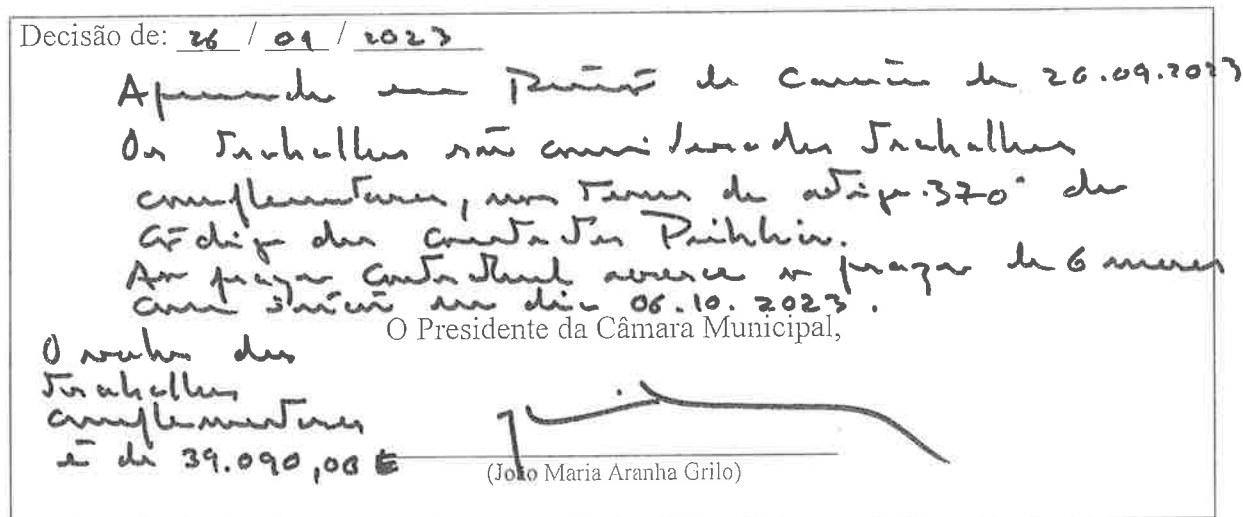 Decisão de: 26 / 09 / 2023
Aprovado em Reunião de Câmara de 26.09.2023
Os Trabalhos são considerados Trabalhos
complementares, nos Termos do artigo 370º do
Código dos Contratos Públicos.
Ao prazo contratual acresce o prazo de 6 meses
com início no dia 06.10.2023.
O Presidente da Câmara Municipal,
O valor dos
Trabalhos
complementares
é de 39.090,00 €
(João Maria Aranha Grilo)